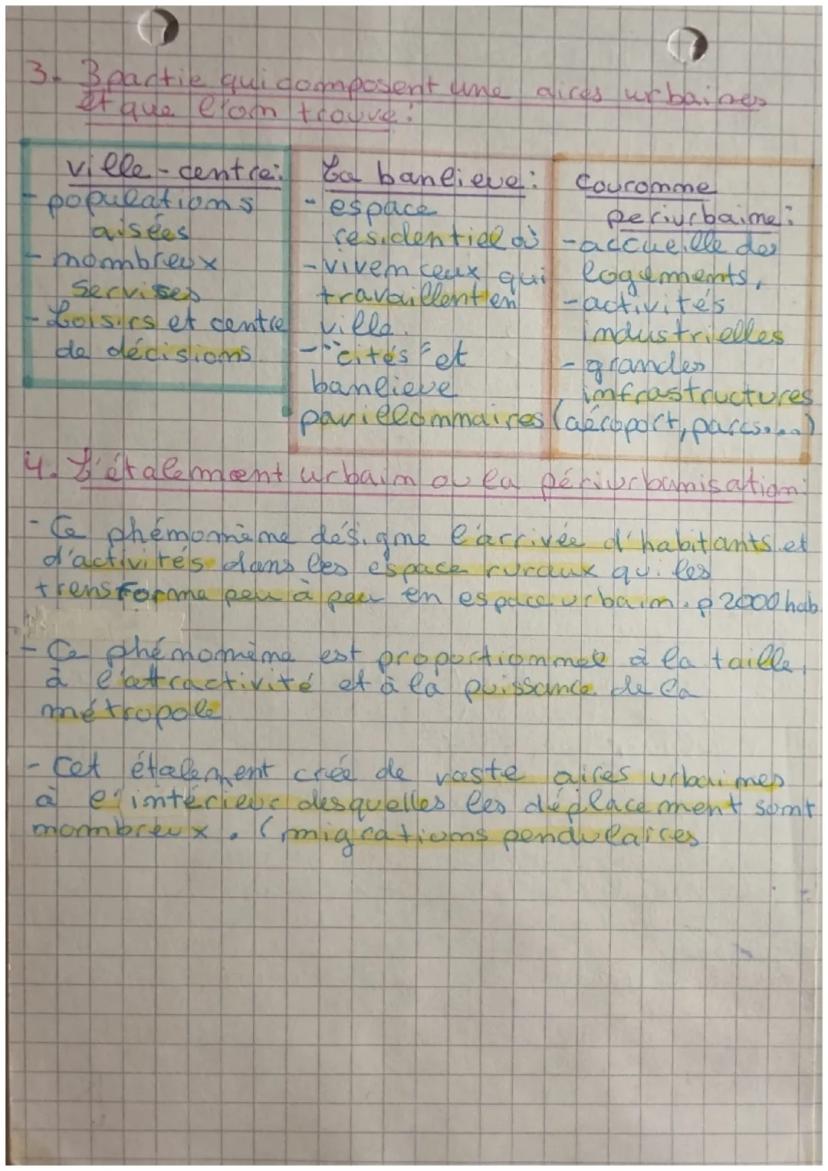 3. 3 partie qui composent une aires urbaines
et que l'on trouve:
ville-centre:
- populations
aisées
- nombreux
servises
- Loisirs et centre
de décisions
La banlieue:
- espace
résidentiel où
- vivem ceux qui
travaillent en
ville.
- "cités" et
banlieue
pavillonnaires
couronne
periurbaine:
- accueille des
logements,
- activités
industrielles
- grandes
infrastructures
(aéroport, parcs....)
4. L'étalement urbain ou la périurbanisation:
- Ce phénomène désigne l'arrivée d'habitants et
d'activités dans les espace ruraux qui les
transforma peu à peu en espace urbain. p 2000 hab
- Ce phénomène est proportionnel à la taille,
à l'attractivité et à la puissance de la
métropole
- Cet étalement crée de vaste aires urbaines
à l'intérieur desquelles les déplacement sont
nombreux. (migrations pendulaires